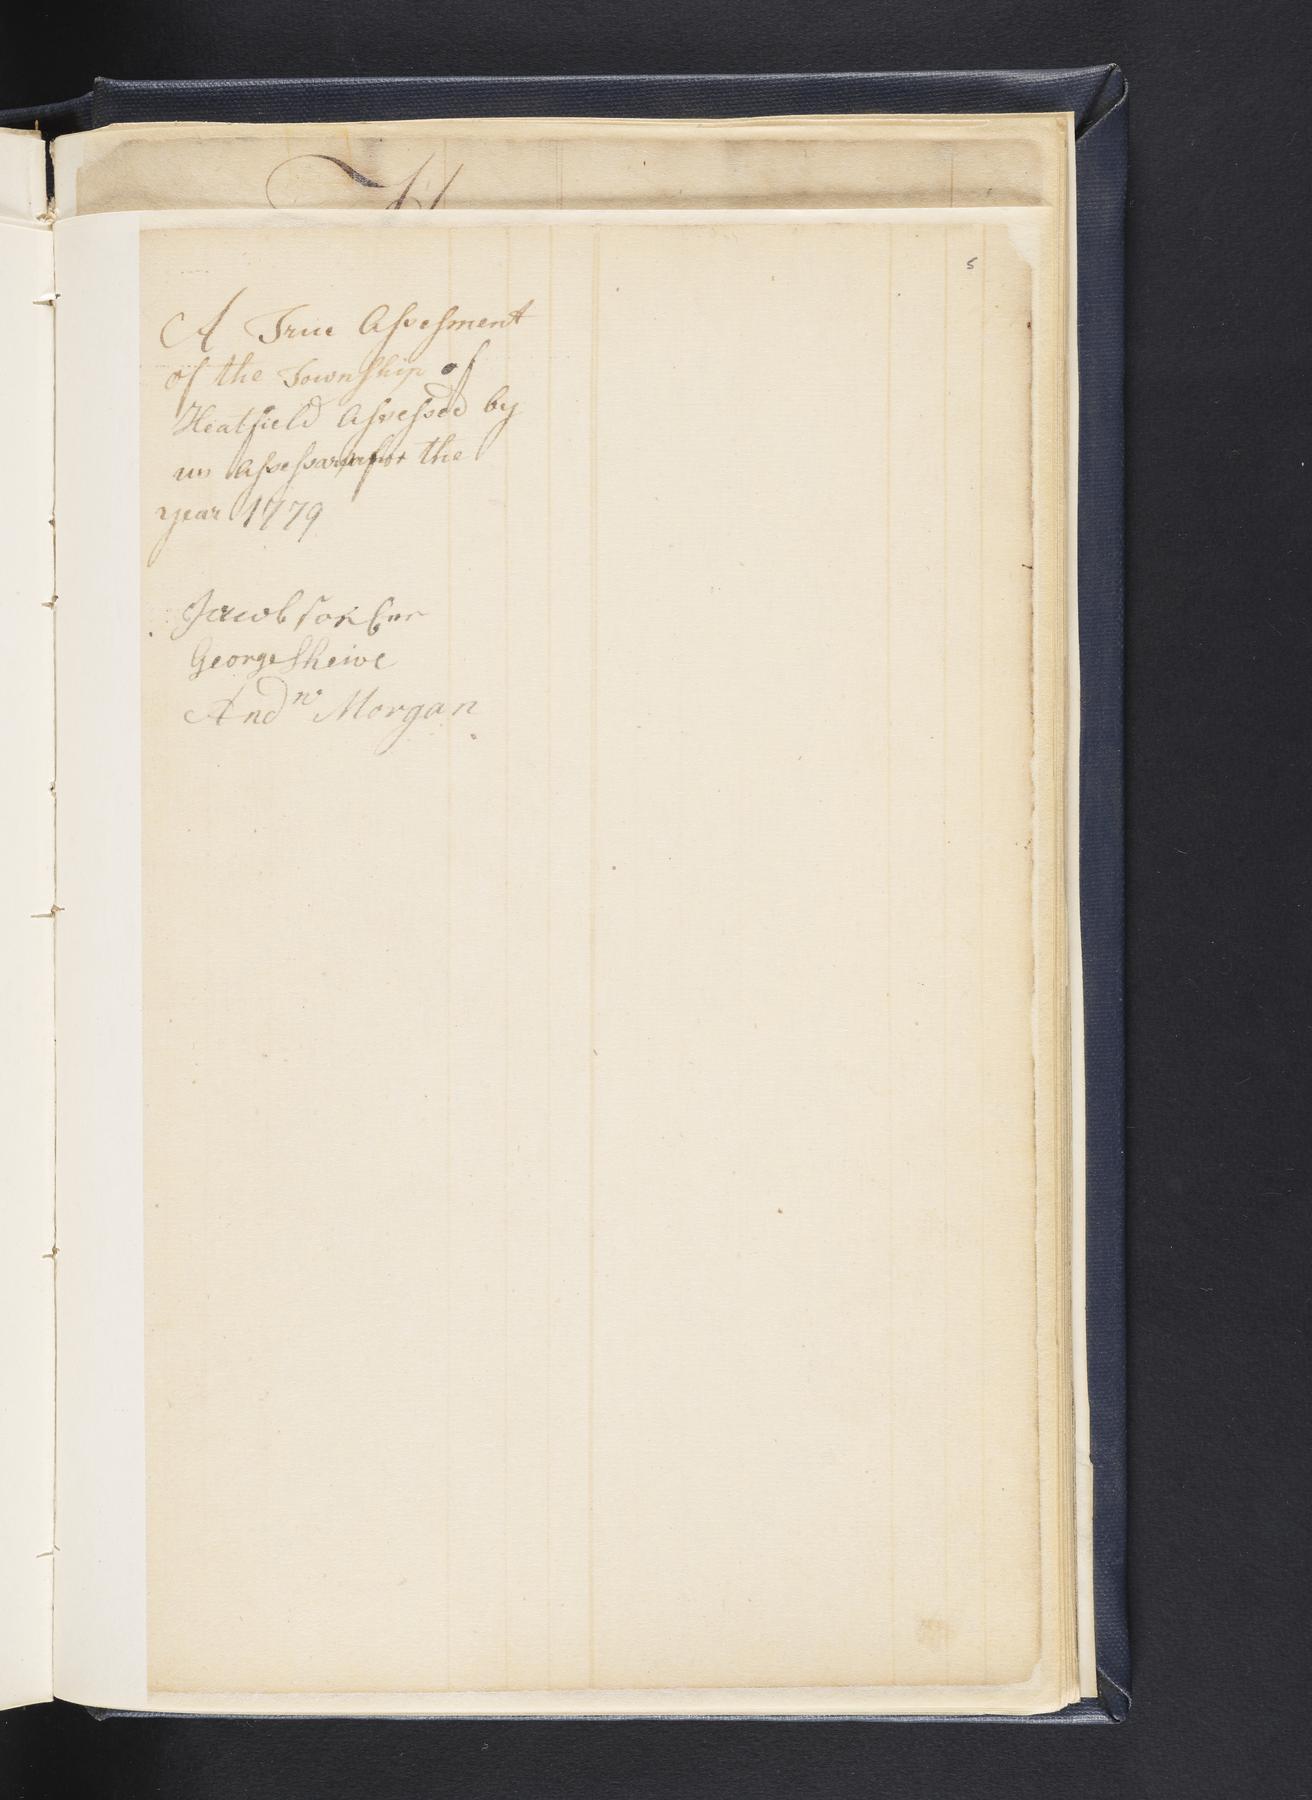 5
A True Assesment
of the Township of
Heatfield Assessed by
us Assessars for the
year 1779
Jacob
George Sheive
Andw Morgan